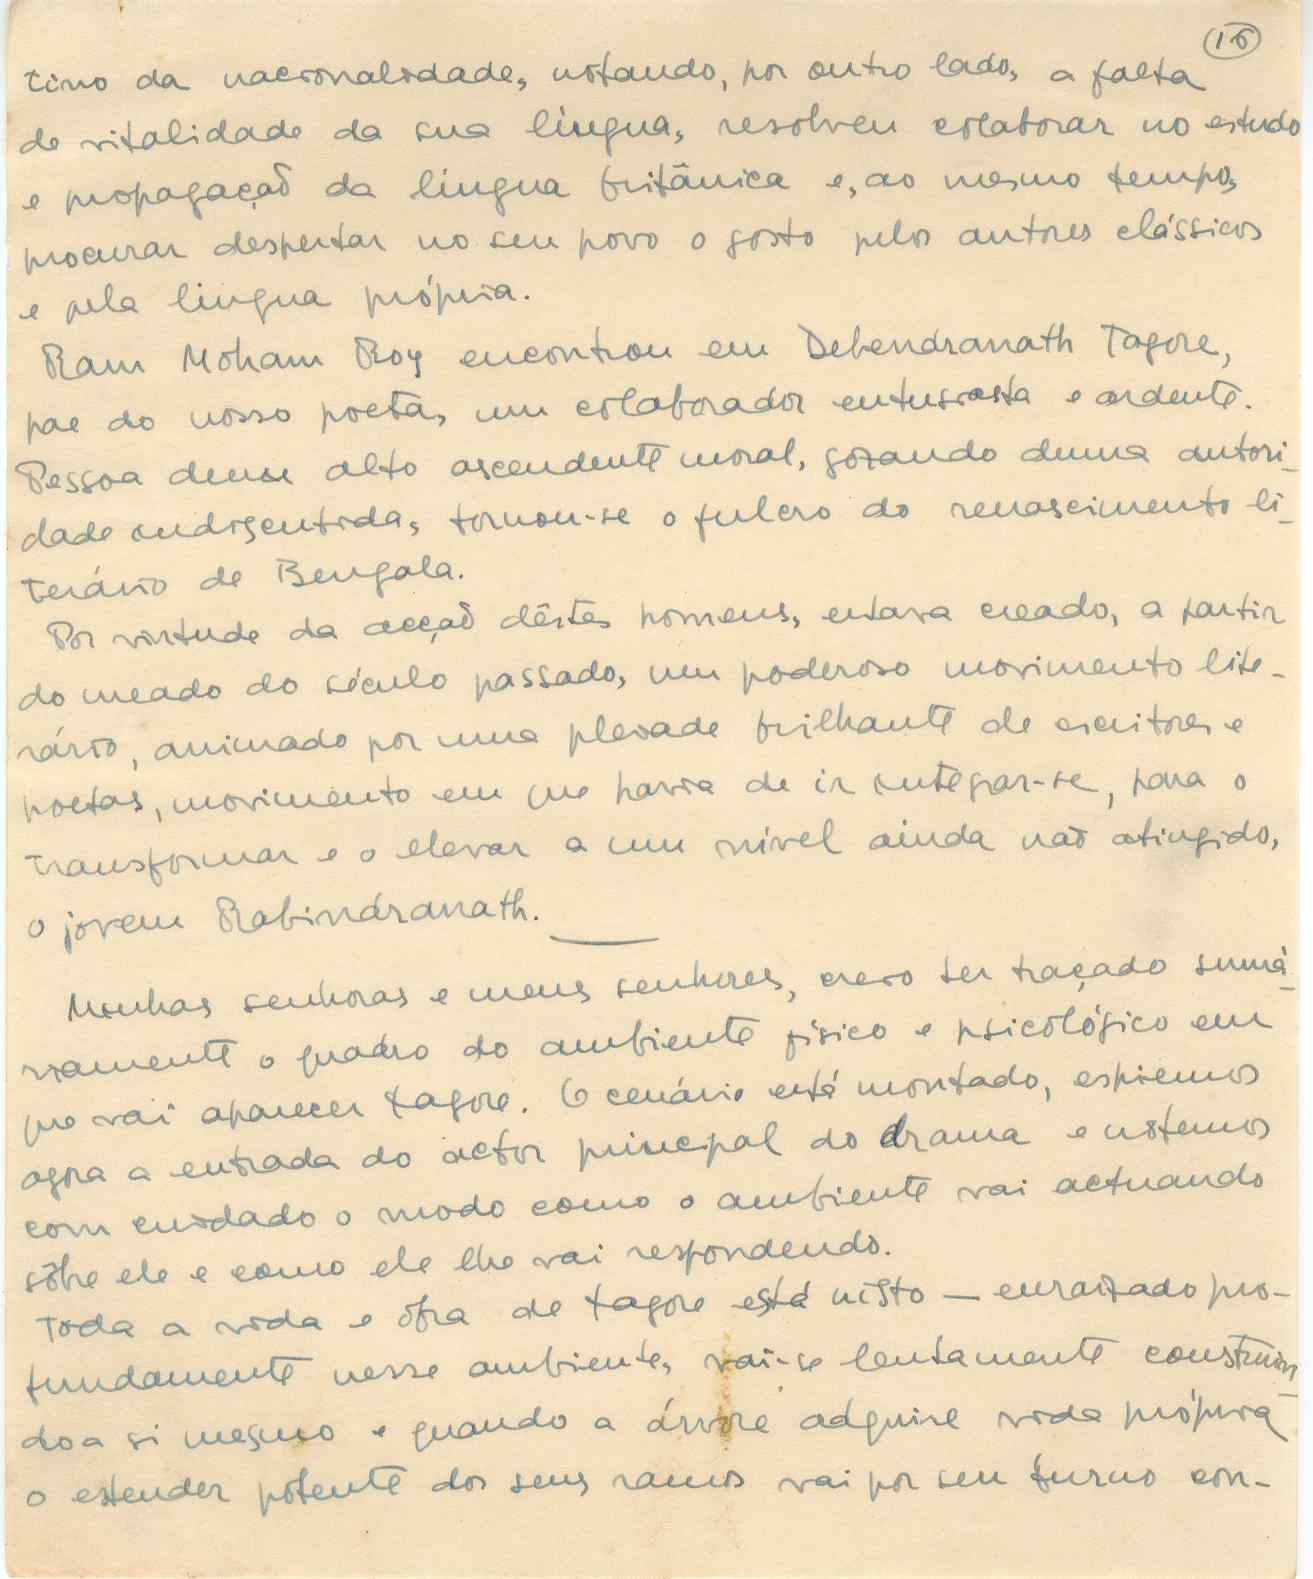 16
tino da nacionalidade, notando, por outro lado, a falta
de vitalidade da sua língua, resolveu colaborar no estudo
e propagação da língua britânica e, ao mesmo tempo,
procurar despertar no seu povo o gosto pelos autores clássicos
e pela lingua própria.
Ram Moham Roy encontrou em Debendranath Tagore,
pae do nosso poeta, um colaborador entusiasta e ardente.
Pessoa dum alto ascendente moral, gozando duma autori-
dade indiscutida, tornou-se o fulcro do renascimento li-
terário de Bengala.
Por virtude da acção dêstes homens, estava creado, a partir
do meado do século passado, um poderoso movimento lite-
rário, animado por uma pleiade brilhante de escritores e
poetas, movimento em que havia de ir integrar-se, para o
transformar e o elevar a um nível ainda não atingido,
o jovem Rabindranath.
Minhas senhoras e meus senhores, creio ter traçado sumà-
riamente o quadro do ambiente físico e psicológico em
que vai aparecer Tagore. O cenário está montado, espiemos
agora a entrada do actor principal do drama e notemos
com cuidado o modo como o ambiente vai actuando
sôbre ele e como ele lhe vai respondendo.
Toda a vida e obra de Tagore está nisto — enraizado pro-
fundamente nesse ambiente, vai-se lentamente construin-
do a si mesmo e quando a árvore adquire vida própria
o estender potente dos seus ramos vai por seu turno con-